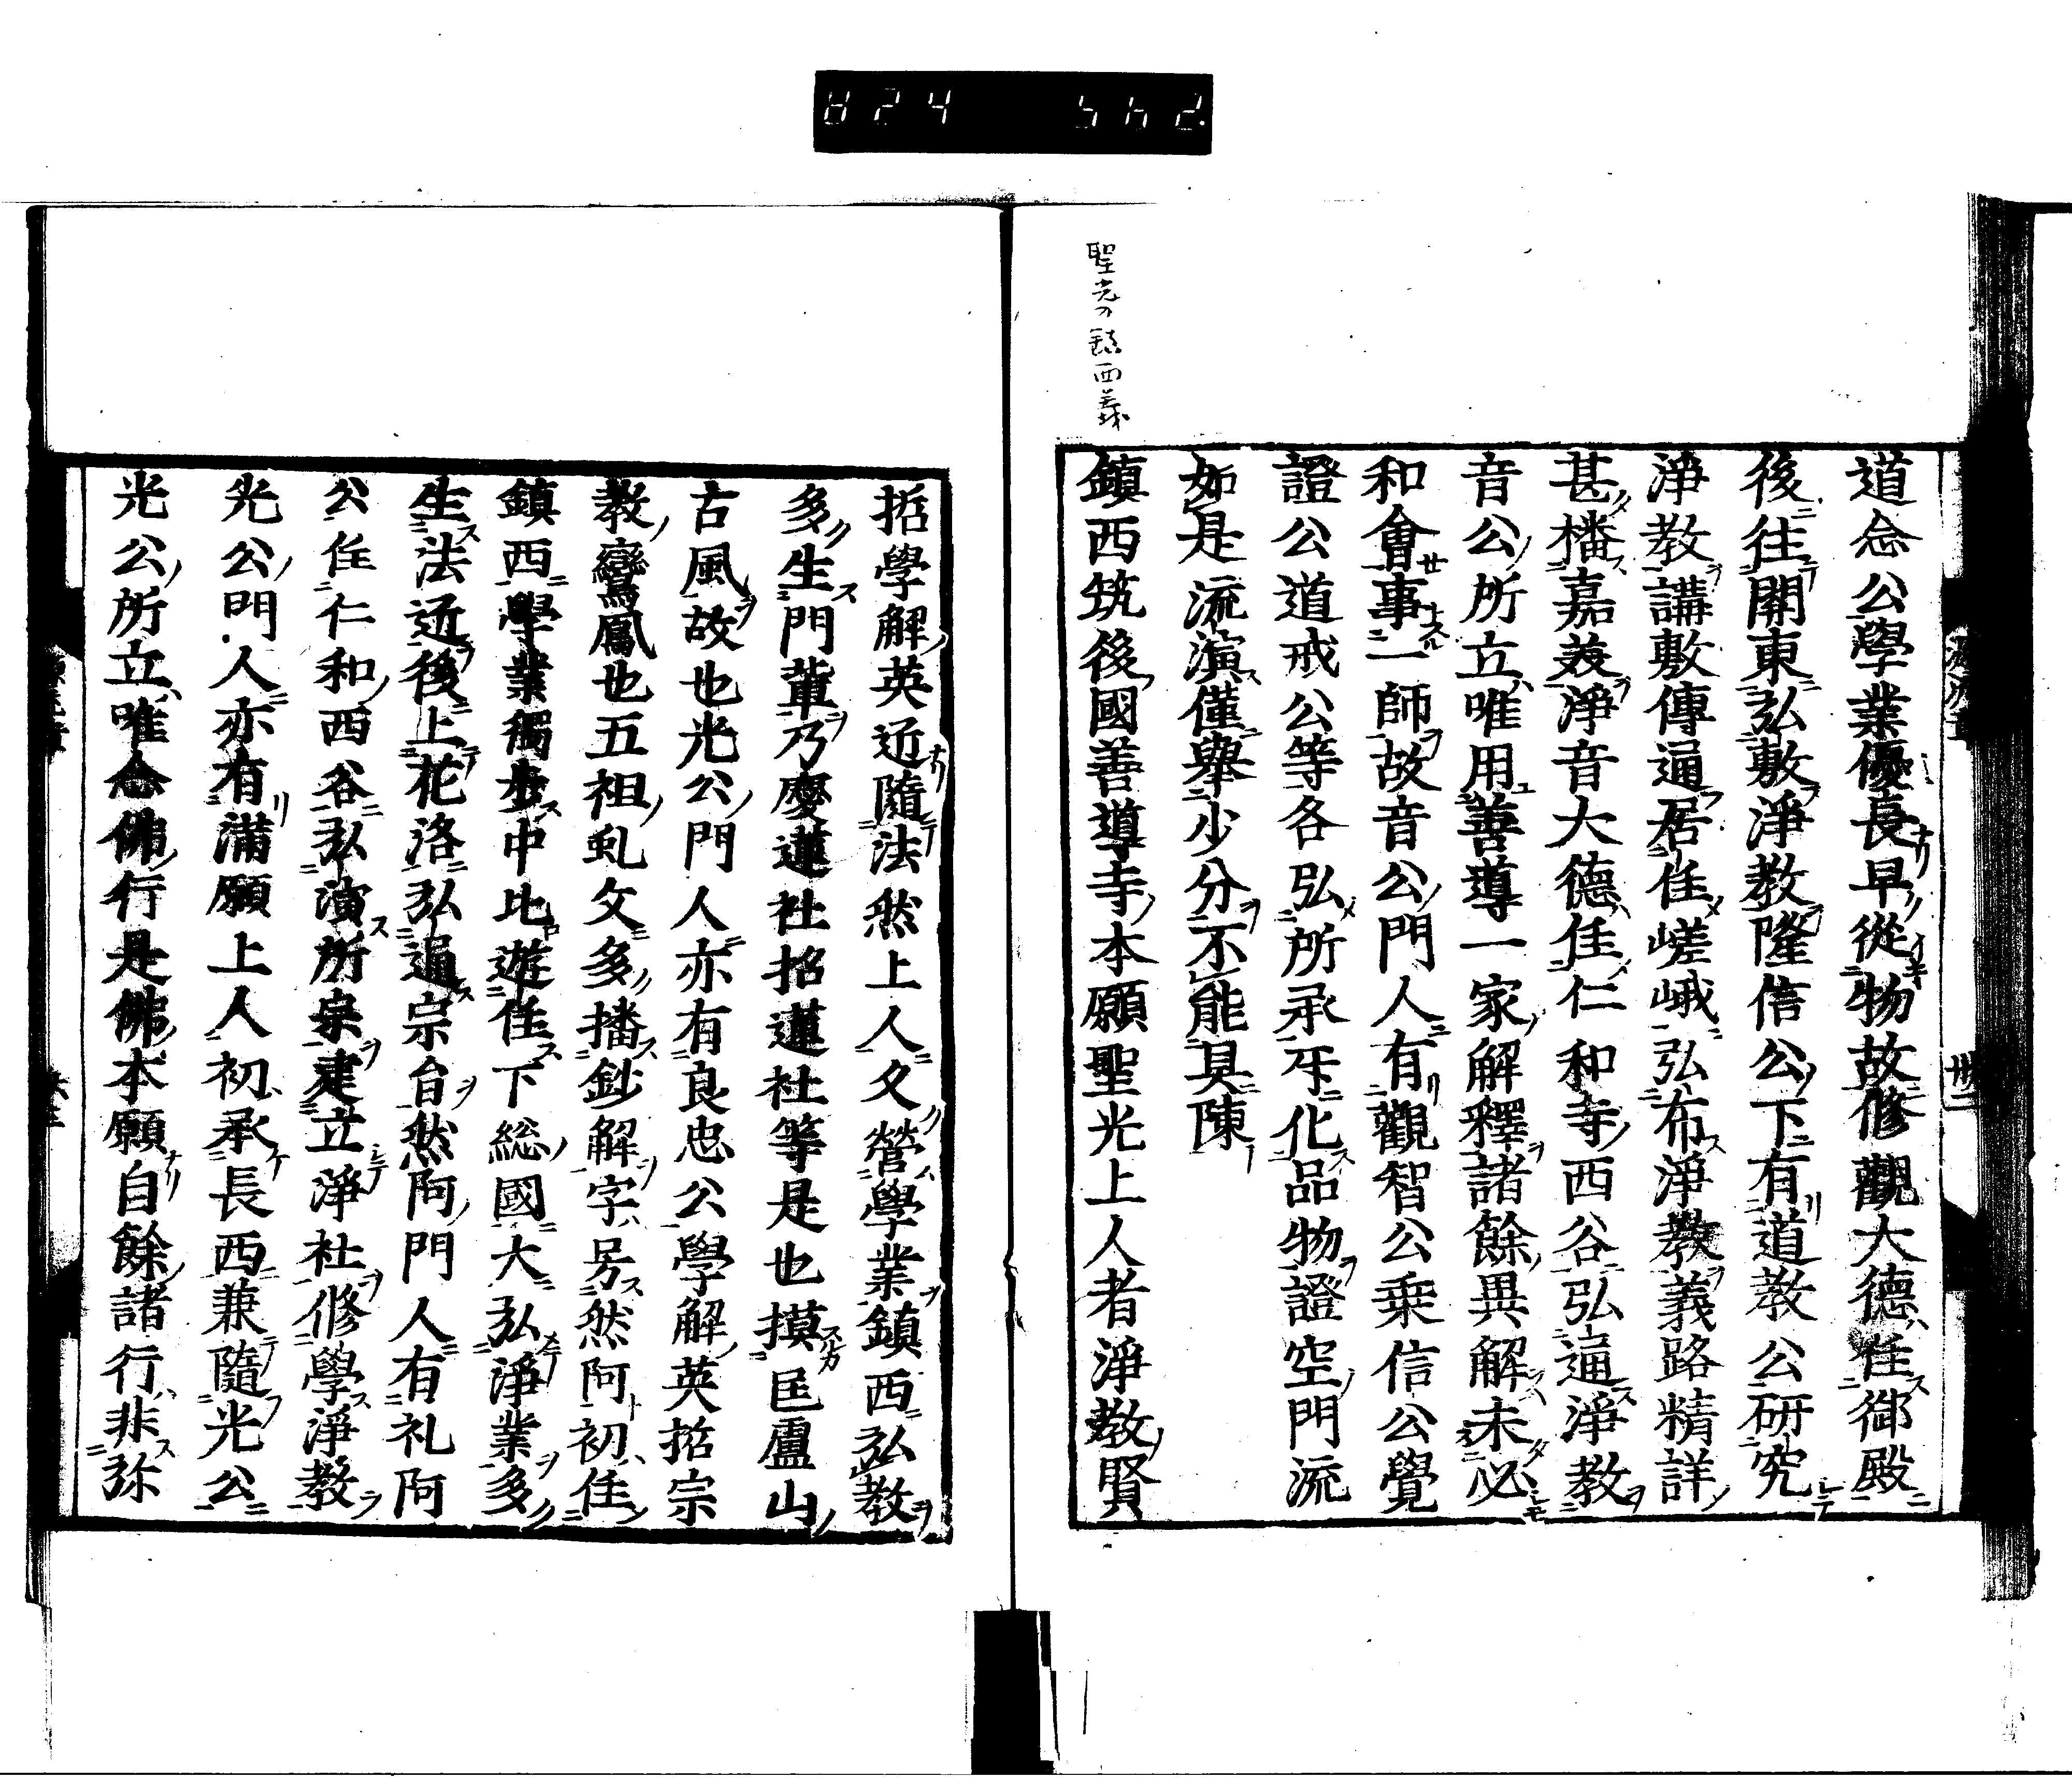 聖光ノ鎮西義
道念公學業優長早從物故修觀大德住御殿
後往關東弘敷淨教隆信公下有道教公研究
淨教講敷傳通居住嵯峨弘布淨教義路精詳
甚播嘉義淨音大德住仁和寺西谷弘通淨教
音公所立唯用善導一家解釋諸餘異解未必
和會事一師故音公門人有觀智公乘信公覺
證公道戒公等各弘所承采化品物證空門流
如是流演僅舉少分不能具陳
鎮西筑後國善導寺本願聖光上人者淨教賢
哲學解英近隨法然上人久營學業鎮西弘教
多生門輩乃慶蓮社招蓮社等是也摸匡盧山
古風故也光公門人亦有良忠公學解英哲宗
教鸞鳳也五祖乹文多播鈔解字另然阿初住
鎮西學業獨步中比遊住下総國大弘淨業多
生法近後上花洛弘通宗旨然阿門人有礼阿
公住仁和西谷弘演所宗建立淨社修學淨教
光公門人亦有滿願上人初承長西兼隨光公
光公所立唯念佛行是佛本願自餘諸行非弥